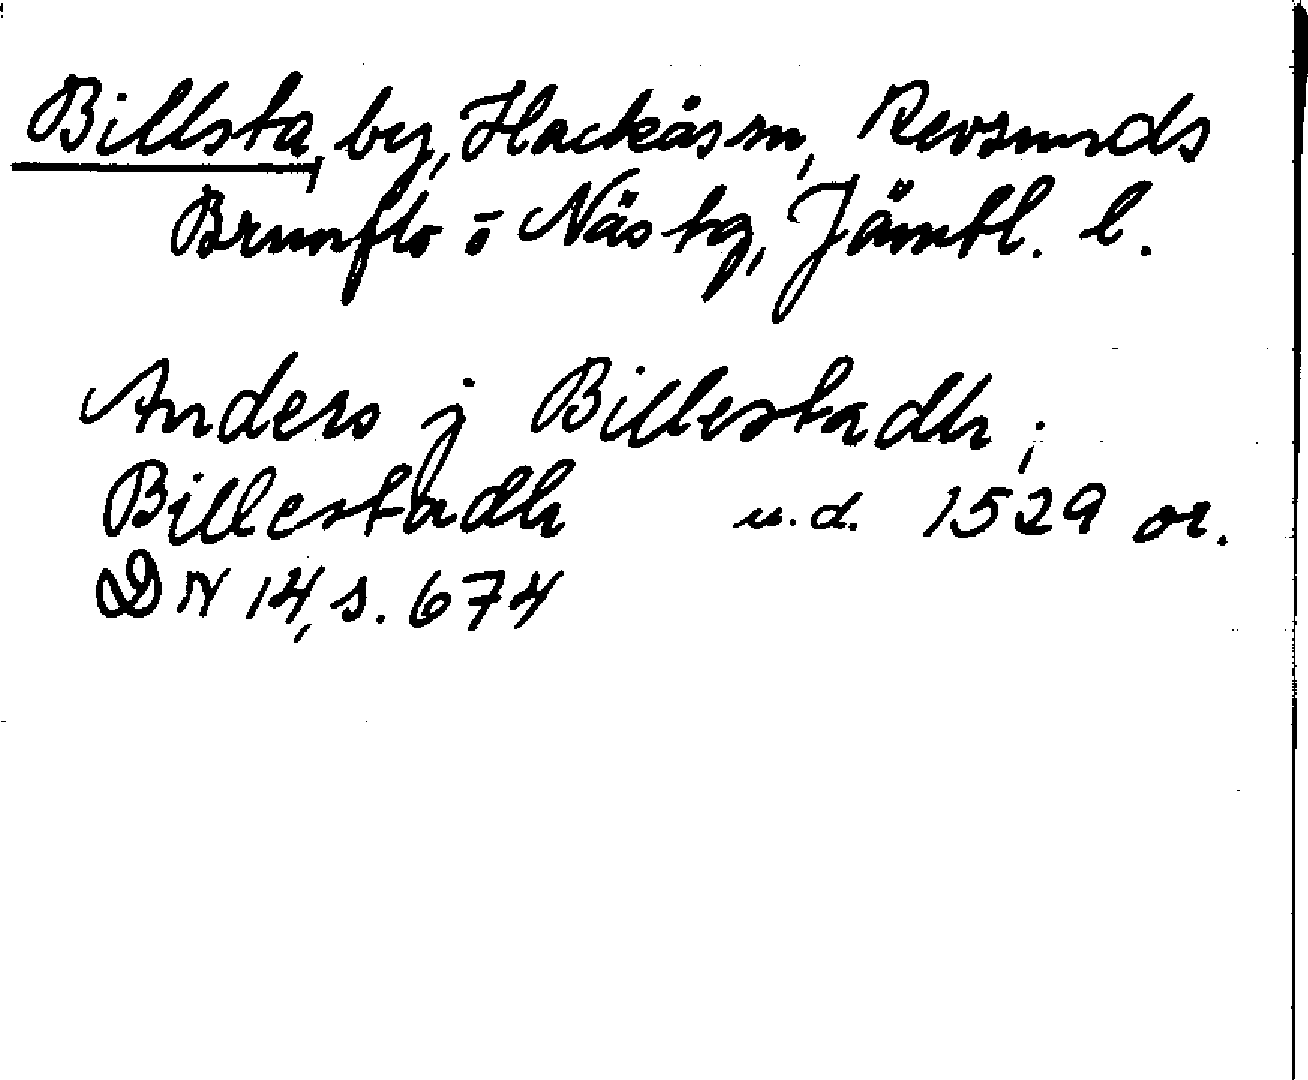 Billsta, by, Hackås sn, Revsunds
Brunflo o Näs tg, Jämtl. l.
Anders j Billestadh;
Billestadh u.d. 1529 or.
DN 14, s. 674